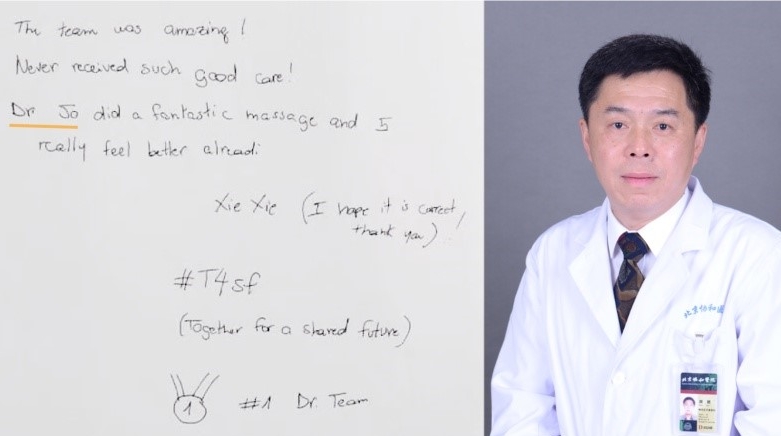 The team was amazing!
Never received such good care!
Dr. Jo did a fantastic massage and I
really feel better already.
Xie Xie (I hope it is correct,
thank you)!
#T4sf
(Together for a shared future)
1 #1 Dr. Team
北京协和医
北京协和医院